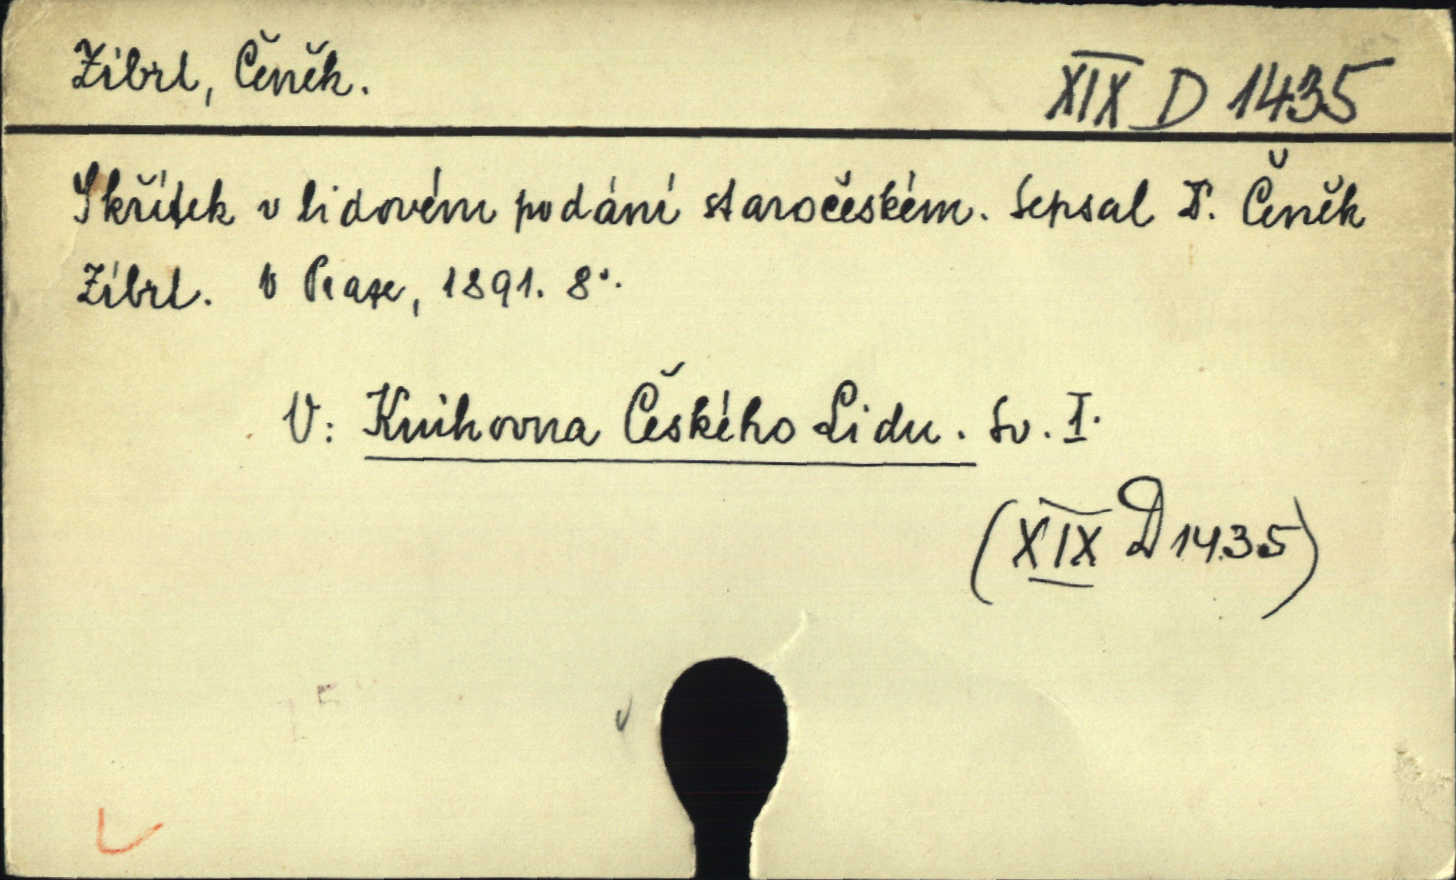 Zíbrt, Čeněk.
XIX D 1435
Skřítek v lidovém podání staročeském. Sepsal D. Čeněk
Zíbrt. V Praze, 1891. 8°.
V: Knihovna Českého Lidu. Sv. I.
(XIX D 1435)